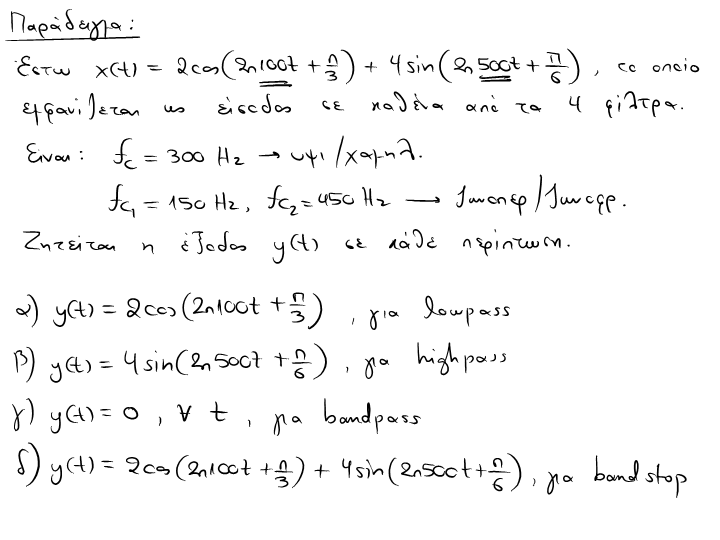 Παράδειγμα:
Έστω x(t) = 2cos(2π100t + π/3) + 4sin(2π500t + π/6), το οποίο
εμφανίζεται ως είσοδος σε καθένα από τα 4 φίλτρα.
Είναι: fc = 300 Hz → υψι/χαμηλ.
fc₁ = 150 Hz, fc₂ = 450 Hz → ζωνοπερ/ζωνοφρ.
Ζητείται η έξοδος y(t) σε κάθε περίπτωση.
α) y(t) = 2cos(2π100t + π/3), για lowpass
β) y(t) = 4sin(2π500t + π/6), για highpass
γ) y(t) = 0, ∀ t, για bandpass
δ) y(t) = 2cos(2π100t + π/3) + 4sin(2π500t + π/6), για bandstop